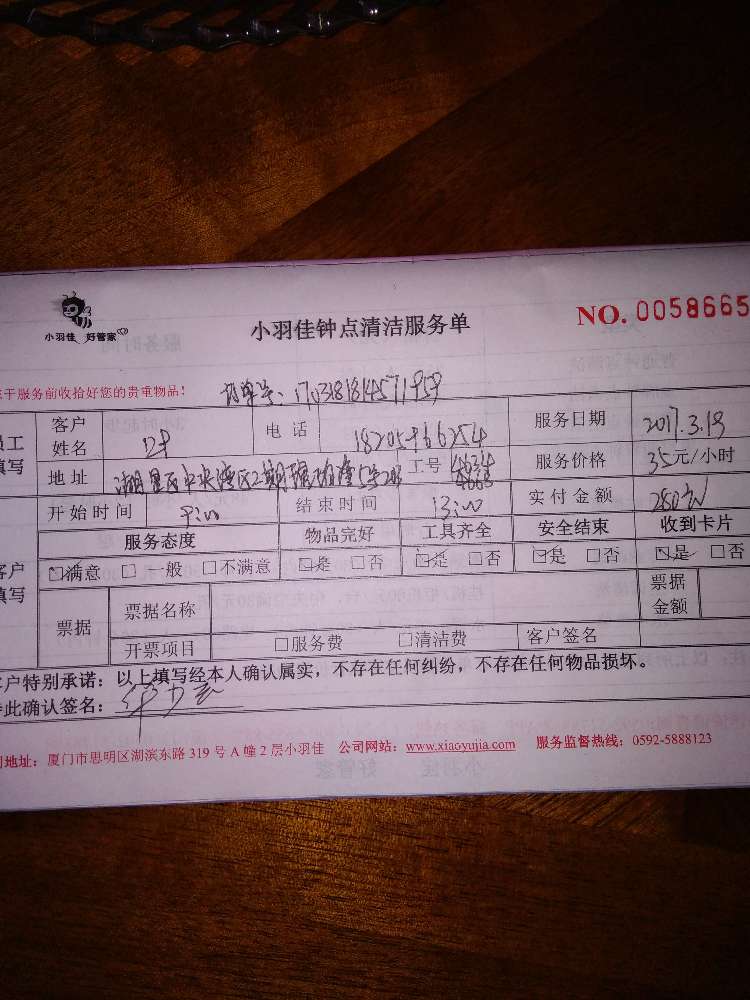 小羽佳 好管家
小羽佳钟点清洁服务单
NO. 0058665
于服务前收拾好您的贵重物品!
订单号: 170318184571959
员工填写 客户姓名 电话 18205966254 服务日期 2017.3.19
地址 湖里区中央湾区2期 工号 服务价格 35元/小时
开始时间 9:00 结束时间 13:00 实付金额 280元
客户填写 服务态度 物品完好 工具齐全 安全结束 收到卡片
☑满意 □ 一般 □不满意 ☑是 □否 ☑是 □否 ☑是 □否 ☑是 □否
票据 票据名称 票据金额
开票项目 □服务费 □清洁费 客户签名
客户特别承诺:以上填写经本人确认属实,不存在任何纠纷,不存在任何物品损坏。
此确认签名:
地址:厦门市思明区湖滨东路 319 号 A 幢 2 层小羽佳 公司网站:www.xiaoyujia.com 服务监督热线:0592-5888123